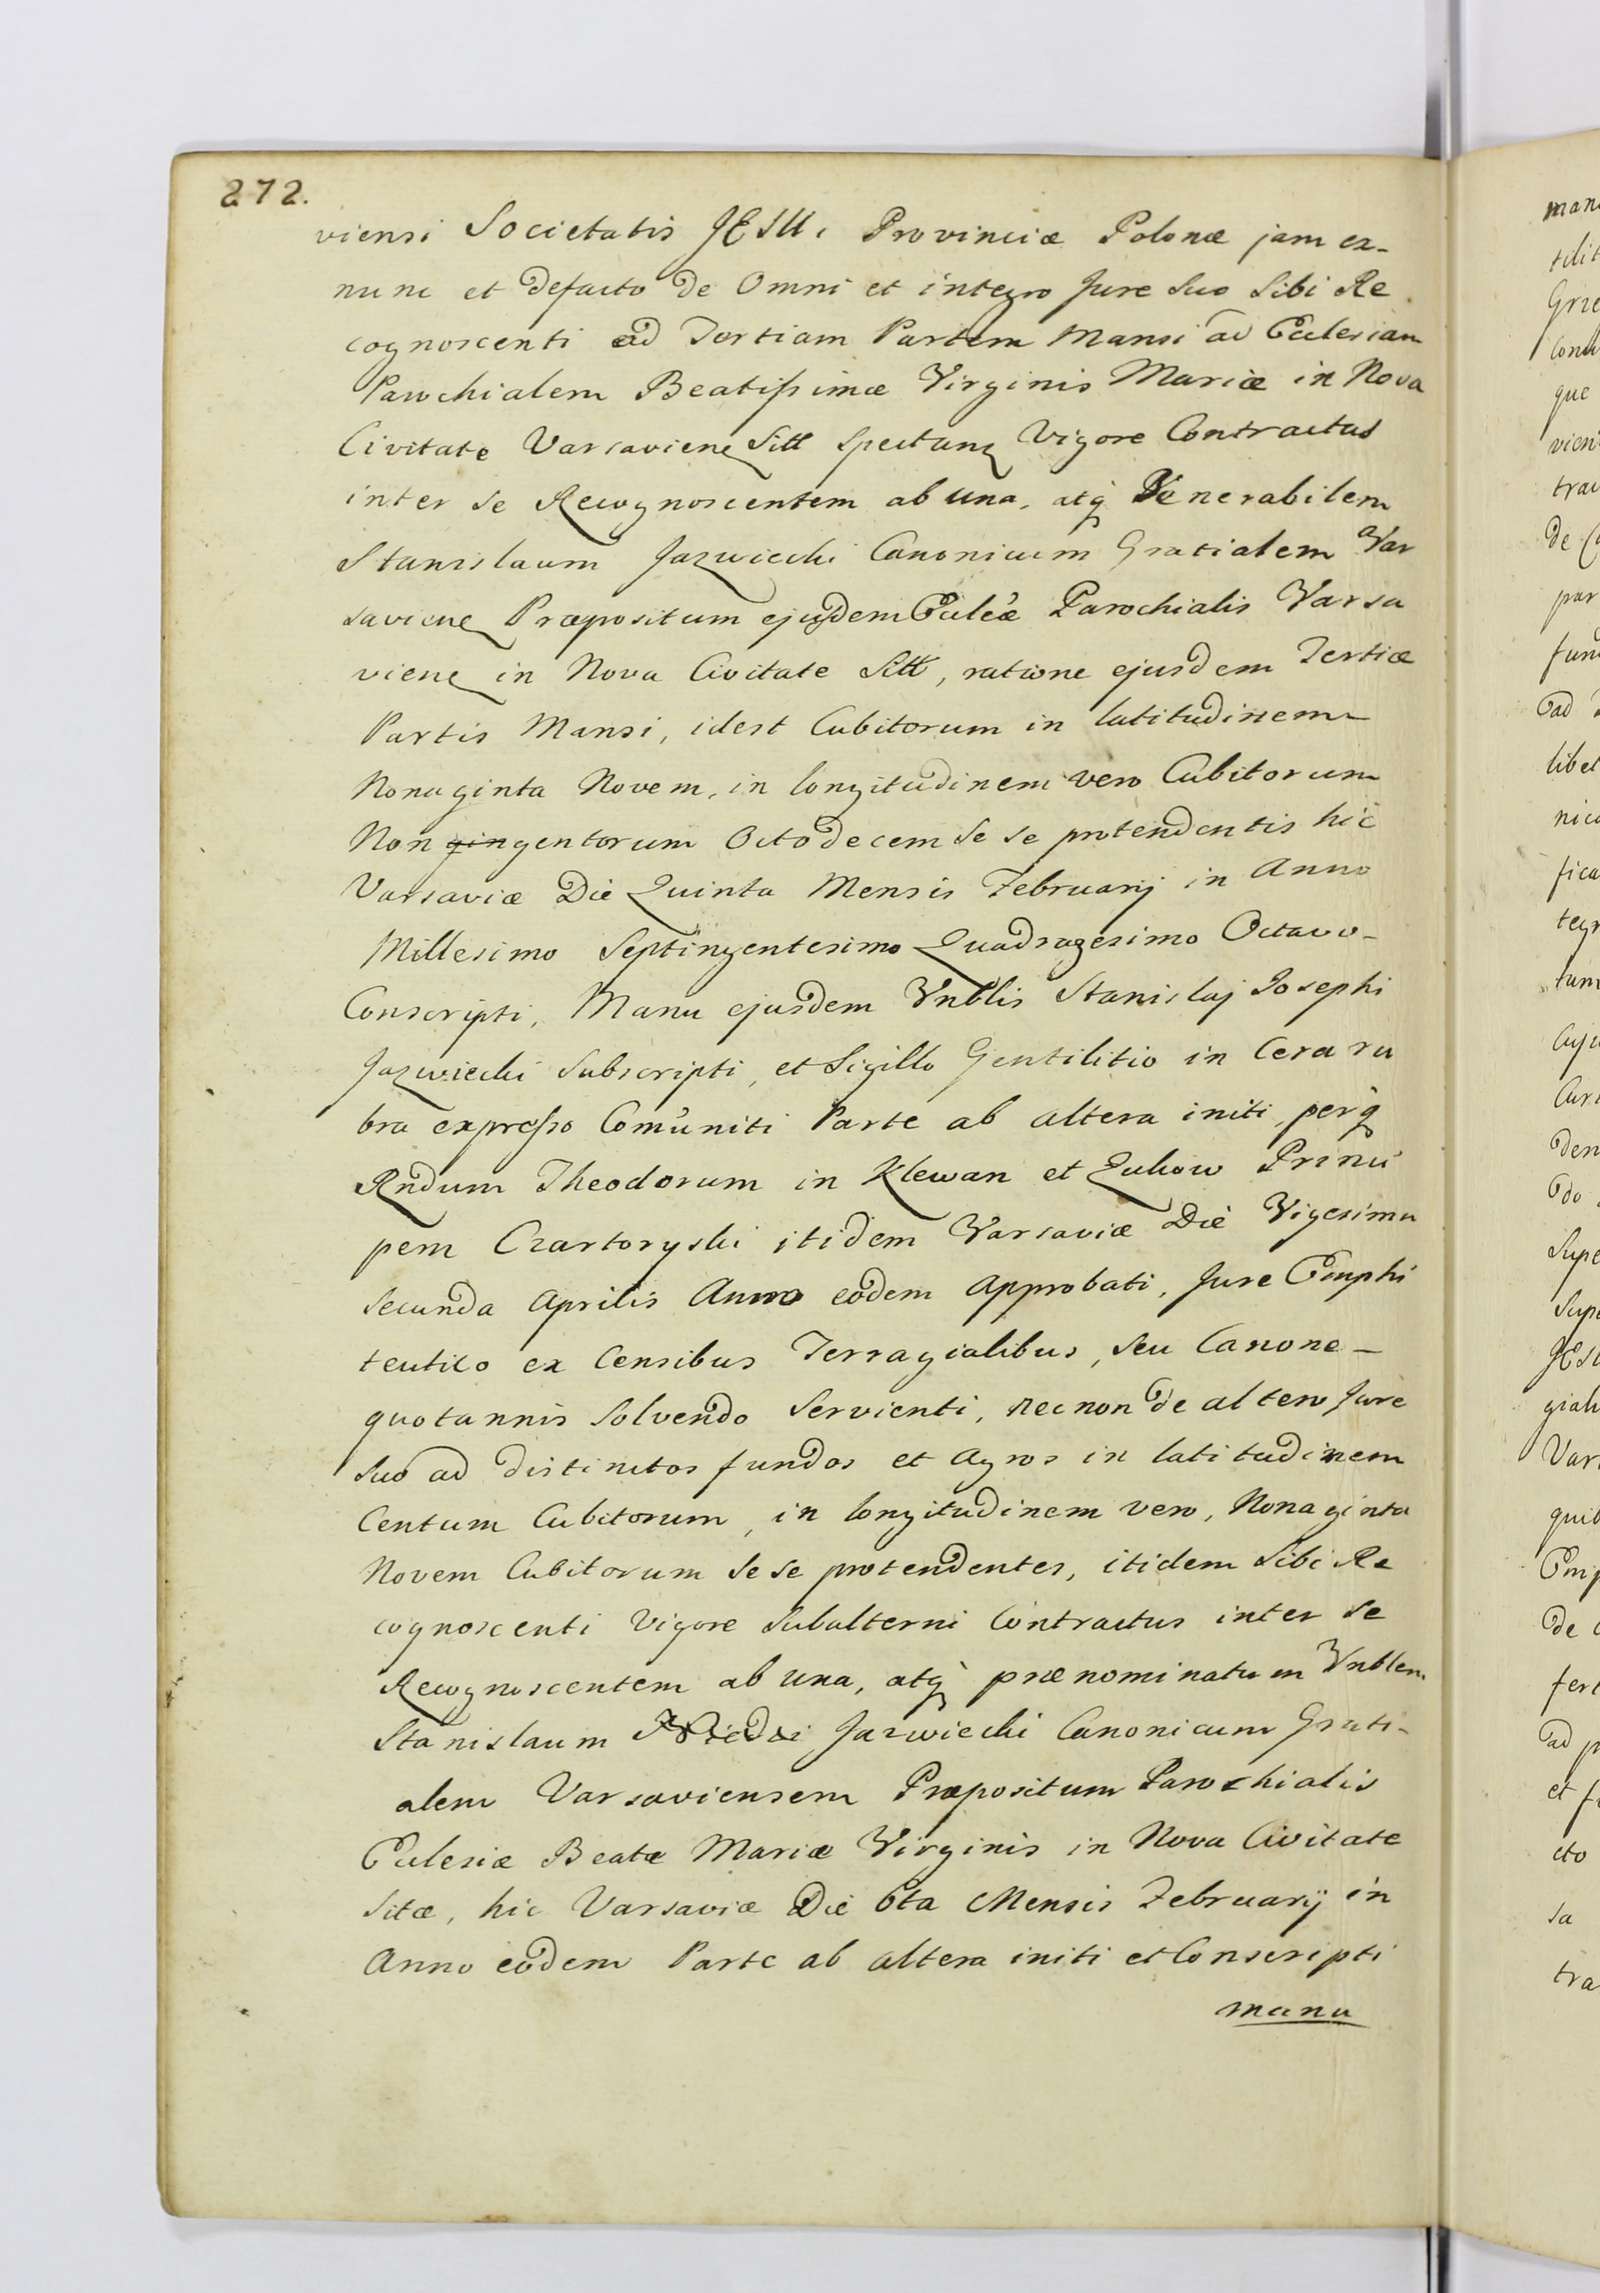 272.
viensi Societatis JESU, Provinciæ Polonæ jam ex-
nunc et defacto de Omni et integro Jure Suo Sibi Re
cognoscenti ad Tertiam Partem Mansi ad Ecclesiam
Parochialem Beatissimæ Virginis Mariæ in Nova
Civitate Varsavien Sitt spectan Vigore Contractus
inter se Recognoscentem ab una, atq Venerabilem
Stanislaum Jazwiecki Canonicum Gratialem Var
savien Præpositum ejusdem Ecleæ Parochialis Varsa
vien in Nova Civitate Sitt, ratione ejusdem Tertiæ
Partis Mansi, idest Cubitorum in latitudinem
Nonaginta Novem, in longitudinem vero Cubitorum
Non gingentorum Octodecem se se protendentis hic
Varsaviæ Die Quinta Mensis February in Anno
Millesimo Septingentesimo Quadragesimo Octavo-
Conscripti, Manu ejusdem Vnblis Stanislaj Josephi
Jazwiecki Subscripti, et Sigillo Gentilitio in Cera ru
bra expresso Comuniti Parte ab altera initi, perq
Rndum Theodorum in Klewan et Zukow Princi
pem Czartoryski itidem Varsaviæ Die Vigesima
secunda Aprilis Anno eodem Approbati, Jure Emphi
teutico ex Censibus Terragialibus, seu Canone -
quotannis solvendo Servienti, nec non de altero Jure
suo ad distinctos fundos et Agros in latitudinem
Centum Cubitorum, in longitudinem vero, Nonaginta
Novem Cubitorum se se protendentes, itidem Sibi Re
cognoscenti Vigore Subalterni Contractus inter se
Recognoscentem ab una, atq prænominatum Vnblem
Stanislaum Jazwiecki Canonicum Grati-
alem Varsaviensem Præpositum Parochialis
Eclesiæ Beatæ Mariæ Virginis in Nova Civitate
Sitæ, hic Varsaviæ Die 6ta Mensis February in
Anno eodem Parte ab altera initi et Conscripti
manu